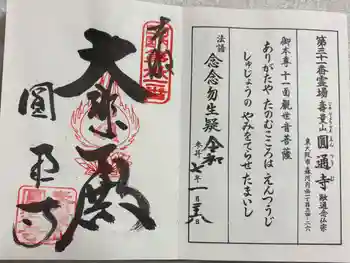 第三十一番霊場 壽量山 圓通寺 融通念仏宗
東大阪市
御本尊 十一面観世音菩薩
ありがたや たのむこころは えんつうじ
しゅじょうの やみをてらせ たまいし
法語 念念勿生疑
令和七年一月 日
奉拝
大悲殿
圓通寺